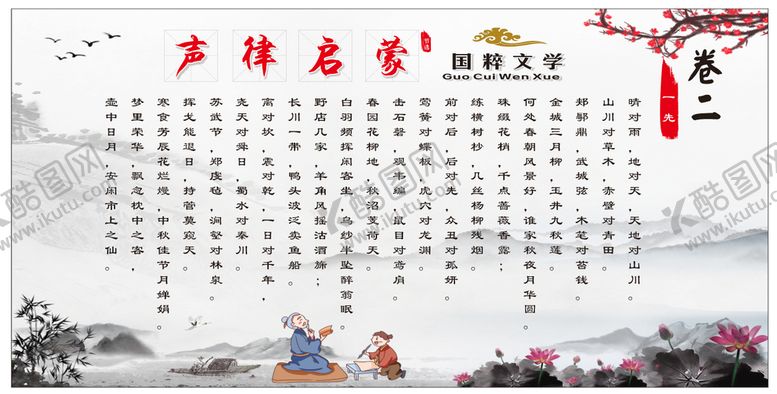 声律启蒙
节选
国粹文学
Guo Cui Wen Xue
卷二
一先
晴对雨，地对天，天地对山川。
山川对草木，赤壁对青田。
郏鄏鼎，武城弦，木笔对苔钱。
金城三月柳，玉井九秋莲。
何处春朝风景好，谁家秋夜月华圆。
珠缀花梢，千点蔷薇香露；
练横树杪，几丝杨柳残烟。
前对后，后对先，众丑对孤妍。
莺簧对蝶板，虎穴对龙渊。
击石磬，观韦编，鼠目对鸢肩。
春园花柳地，秋沼芰荷天。
白羽频挥闲客坐，乌纱半坠醉翁眠。
野店几家，羊角风摇沽酒旆；
长川一带，鸭头波泛卖鱼船。
离对坎，震对乾，一日对千年，
尧天对舜日，蜀水对秦川。
苏武节，郑虔毡，涧壑对林泉。
挥戈能退日，持管莫窥天。
寒食芳辰花烂熳，中秋佳节月婵娟。
梦里荣华，飘忽枕中之客，
壶中日月，安闲市上之仙。
酷图网
www.ikutu.com